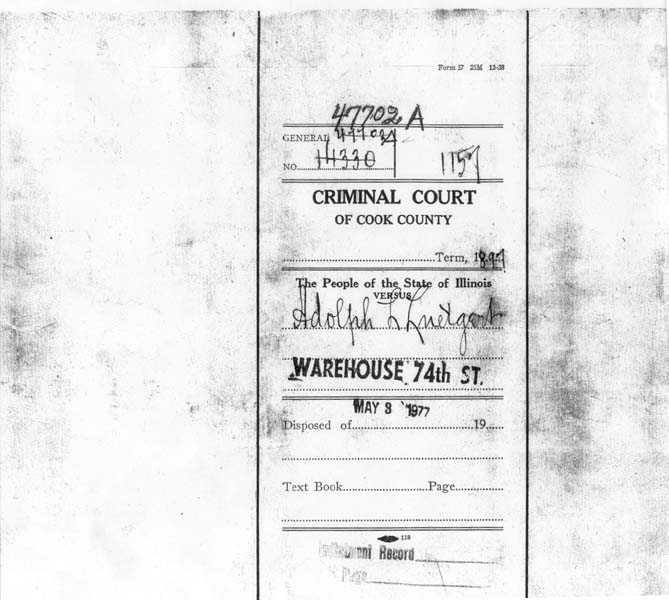 Form 57 25M 12-38
47702 A
GENERAL 47702A
NO. 14330
1157
CRIMINAL COURT
OF COOK COUNTY
Term, 1897
The People of the State of Illinois
VERSUS
Adolph L Luetgert
WAREHOUSE 74th ST.
MAY 3 1977
Disposed of 19
Text Book Page
118
Record
Page